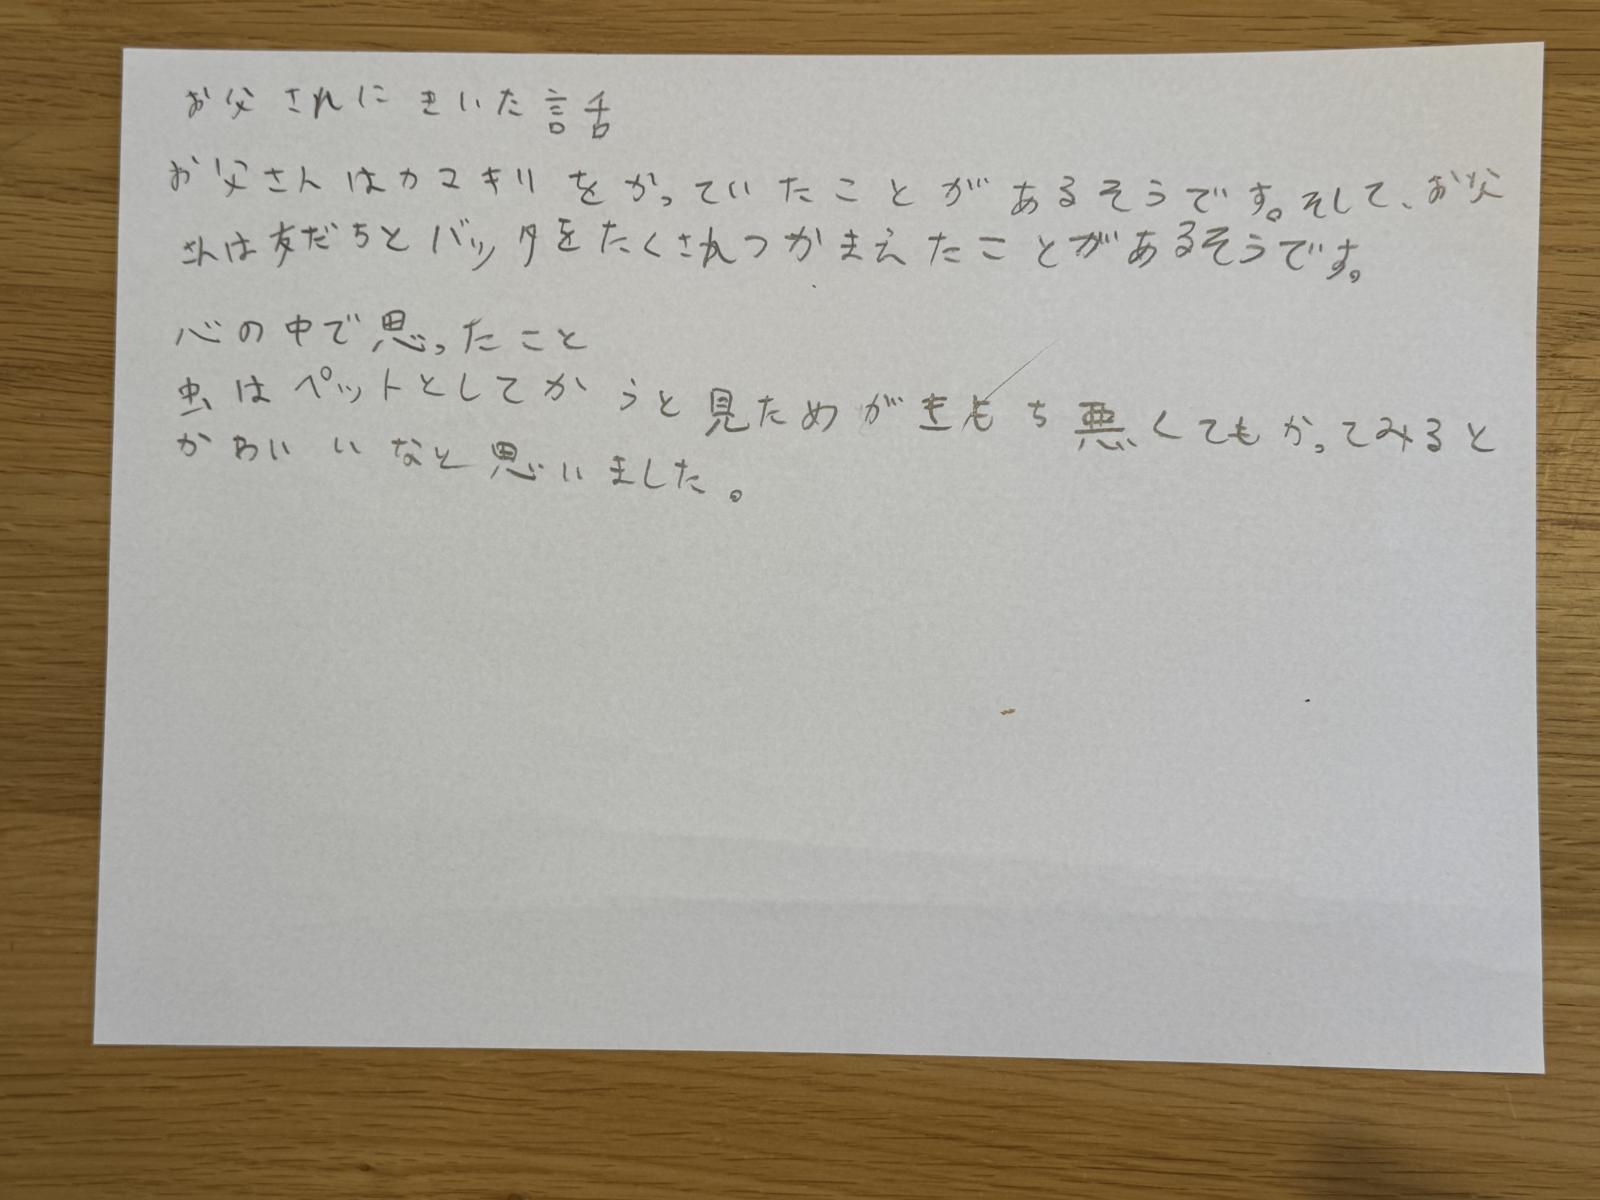 お父さんにきいた話
お父さんはカマキリをかっていたことがあるそうです。そして、お父
さんは友だちとバッタをたくさんつかまえたことがあるそうです。
心の中で思ったこと
虫はペットとしてかうと見ためがきもち悪くてもかってみると
かわいいなと思いました。